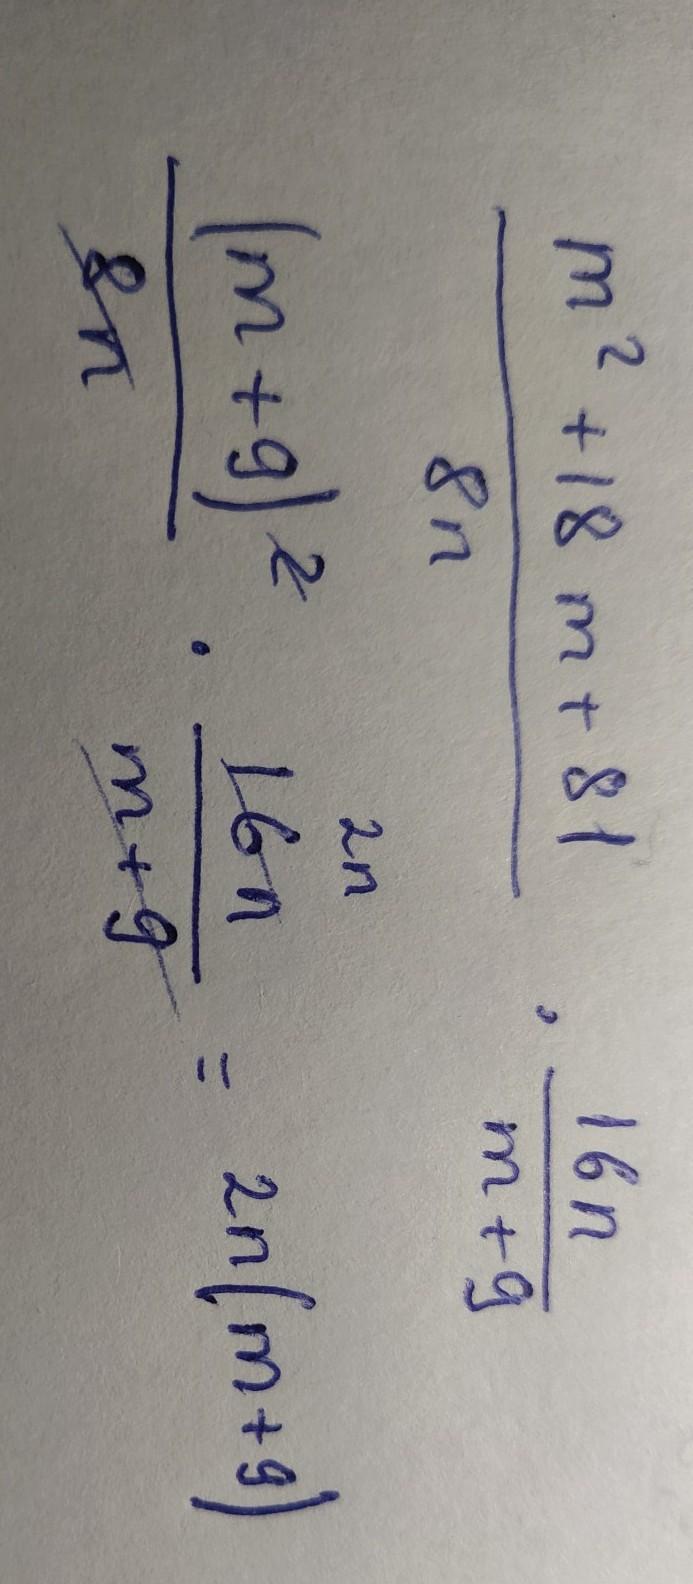 m² + 18m + 81 / 8n · 16n / m + 9
(m + 9)² / 8n · 16n 2n / m + 9 = 2n(m + 9)